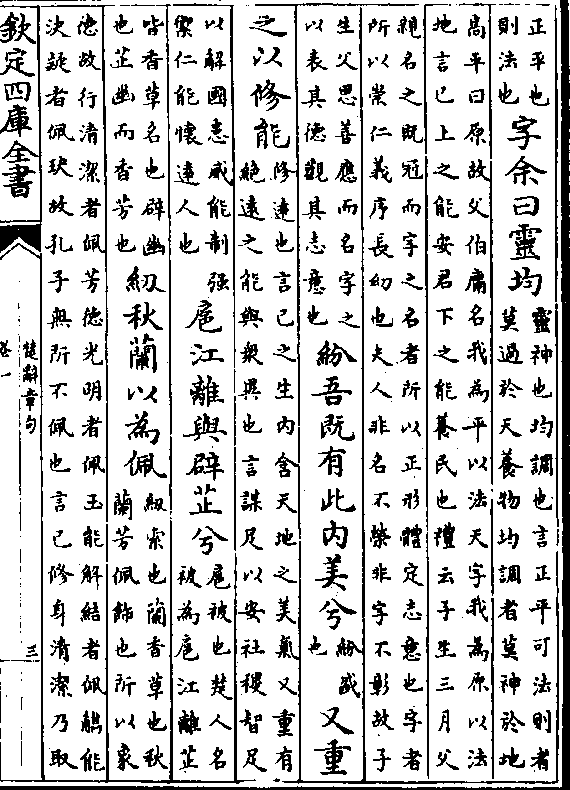 正平也則法也字余曰靈均靈神也均調也言正平可法則者莫過於天養物均調者莫神於地
高平曰原故父伯庸名我為平以法天字我為原以法地言已上之能安君下之能養民也禮云子生三月父
親名之既冠而字之名者所以正形體定志意也字者所以崇仁義序長幼也夫人非名不榮非字不彰故子
生父思善應而名字之以表其德觀其志意也紛吾既有此内美兮紛盛也又重
之以修能修逺也言已之生内含天地之美氣又重有絶逺之能與衆異也言謀足以安社稷智足
以解國患威能制强禦仁能懷逺人也扈江離與辟芷兮扈被也楚人名被為扈江離芷
皆香草名也辟幽也芷幽而香芳也紉秋蘭以為佩紉索也蘭香草也秋蘭芳佩飾也所以象
德故行清潔者佩芳德光明者佩玉能解結者佩觿能決疑者佩玦故孔子無所不佩也言已修身清潔乃取
欽定四庫全書
楚辭章句
卷一
三